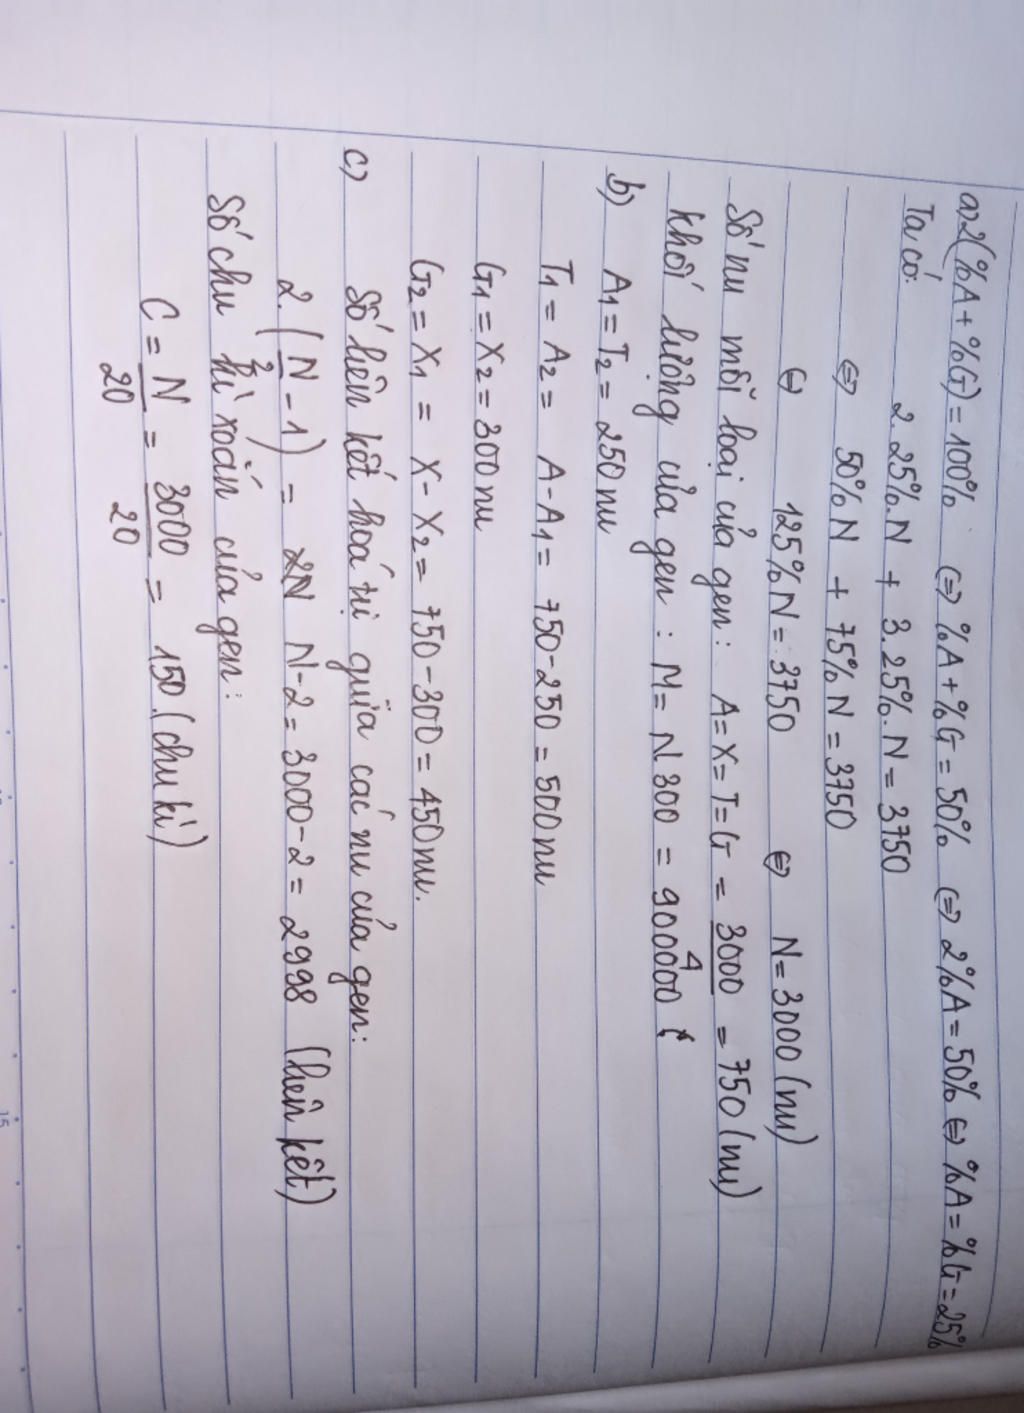 a) 2(%A + %G) = 100% ⇔ %A + %G = 50% ⇔ 2%A = 50% ⇔ %A = %G = 25%
Ta có: 2.25%.N + 3.25%.N = 3750
⇔ 50%N + 75%N = 3750
⇔ 125%N = 3750 ⇔ N = 3000 (nu)
Số nu mỗi loại của gen: A = X = T = G = 3000/4 = 750 (nu)
Khối lượng của gen: M = N 300 = 900000
b) A1 = T2 = 250 nu
T1 = A2 = A - A1 = 750 - 250 = 500 nu
G1 = X2 = 300 nu
G2 = X1 = X - X2 = 750 - 300 = 450 nu.
c) Số liên kết hoá trị giữa các nu của gen:
2.(N/2 - 1) = N - 2 = 3000 - 2 = 2998 (liên kết)
Số chu kì xoắn của gen:
C = N/20 = 3000/20 = 150 (chu kì)
15